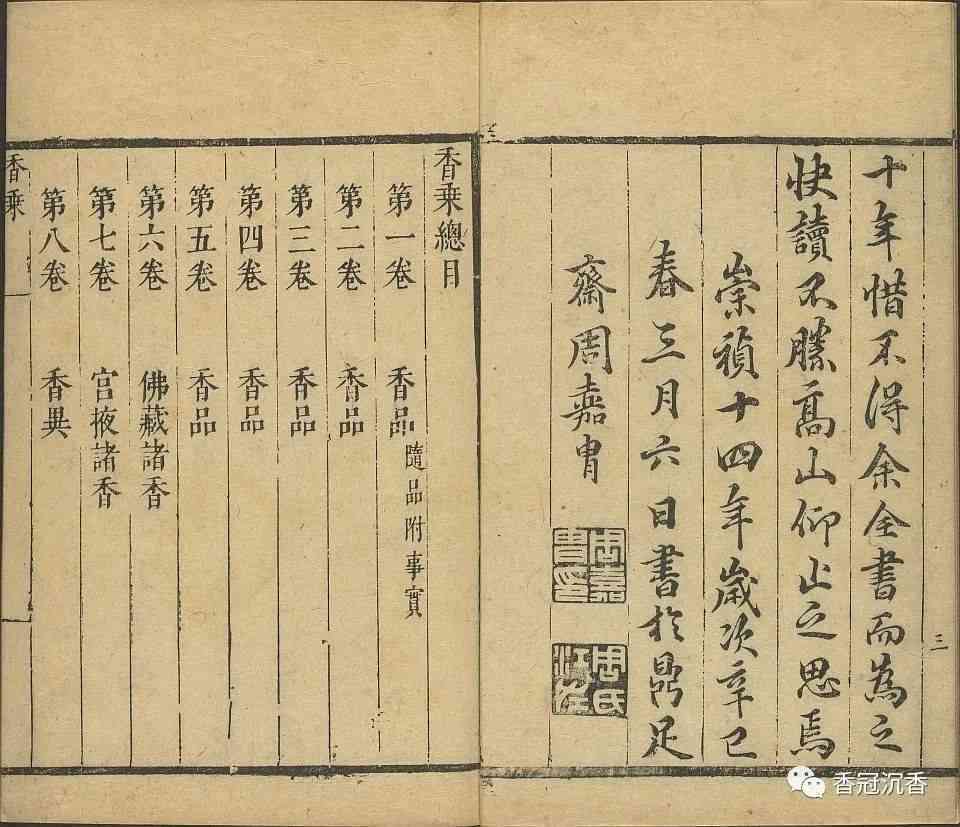 十年惜不得余全書而為之
快讀不勝髙山仰止之思焉
崇禎十四年歲次辛巳
春三月六日書於鼎足
齋周嘉胄
周嘉
胄印
周氏
江左
三
香乗總目
第一卷 香品 隨品附事實
第二卷 香品
第三卷 香品
第四卷 香品
第五卷 香品
第六卷 佛藏諸香
第七卷 宫掖諸香
第八卷 香異
香乗
香冠沉香